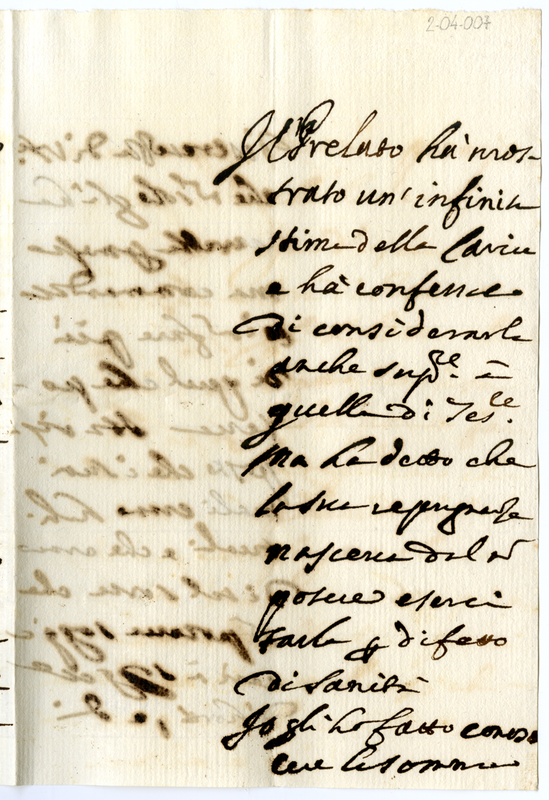 2-04-007
Il Prelato hà mos-
trato un' infinita
stima della Carica
e hà confessato
di considerarla
anche sup.re à
quella di Tes.re
Ma ha detto che
la sua repugnanza
nasceva dal nō
potere eserci
tarla p difetto
di sanità
Io gli ho fatto conos
cere la somma